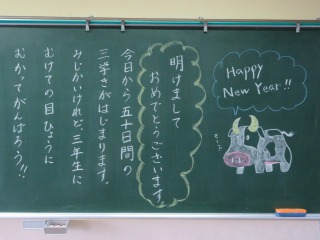 明けまして
おめでとうございます
今日から五十日間の
三学きがはじまります。
みじかいけれど、三年生に
むけての目ひょうに
むかってがんばろう!!
Happy
New Year!!